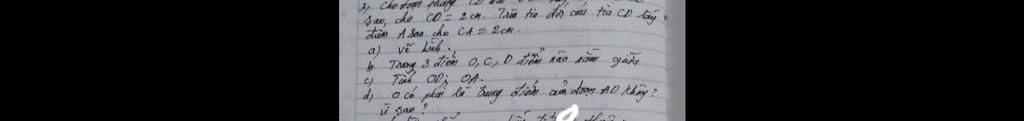 2, Cho đoạn thẳng CD
sao cho CD = 2cm. Trên tia đối của tia CD lấy
điểm A sao cho CA = 2cm.
a) vẽ hình.
b Trong 3 điểm O, C, D điểm nào nằm giữa
c, Tính OD; OA.
d, O có phải là trung điểm của đoạn AD không?
vì sao?